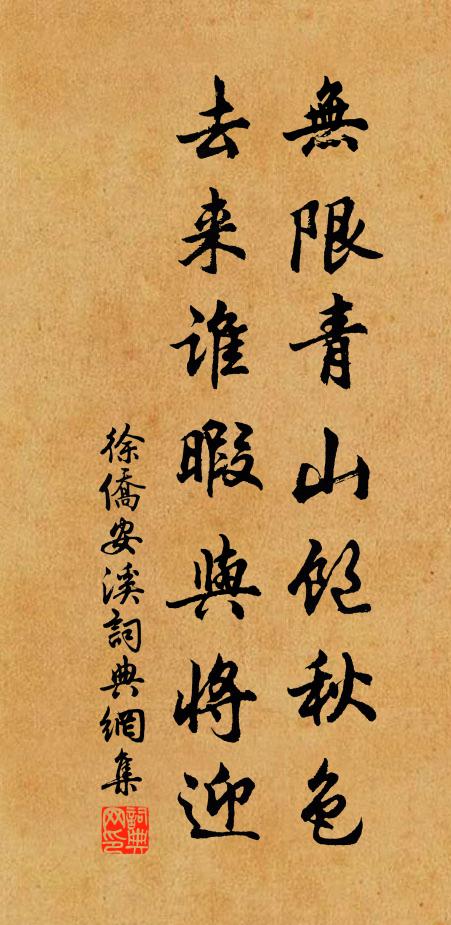 無限青山飽秋色
去来誰暇與將迎
徐僑安溪詞典網集
詞典网印